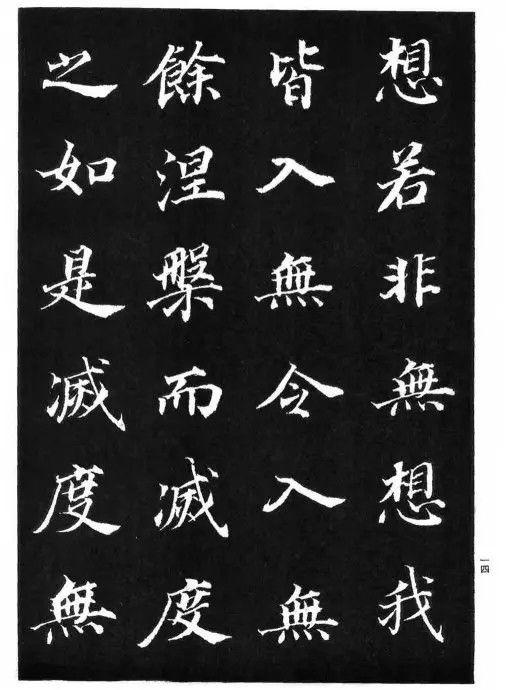 想若非無想我
皆入無令入無
餘涅槃而滅度
之如是滅度無
一四